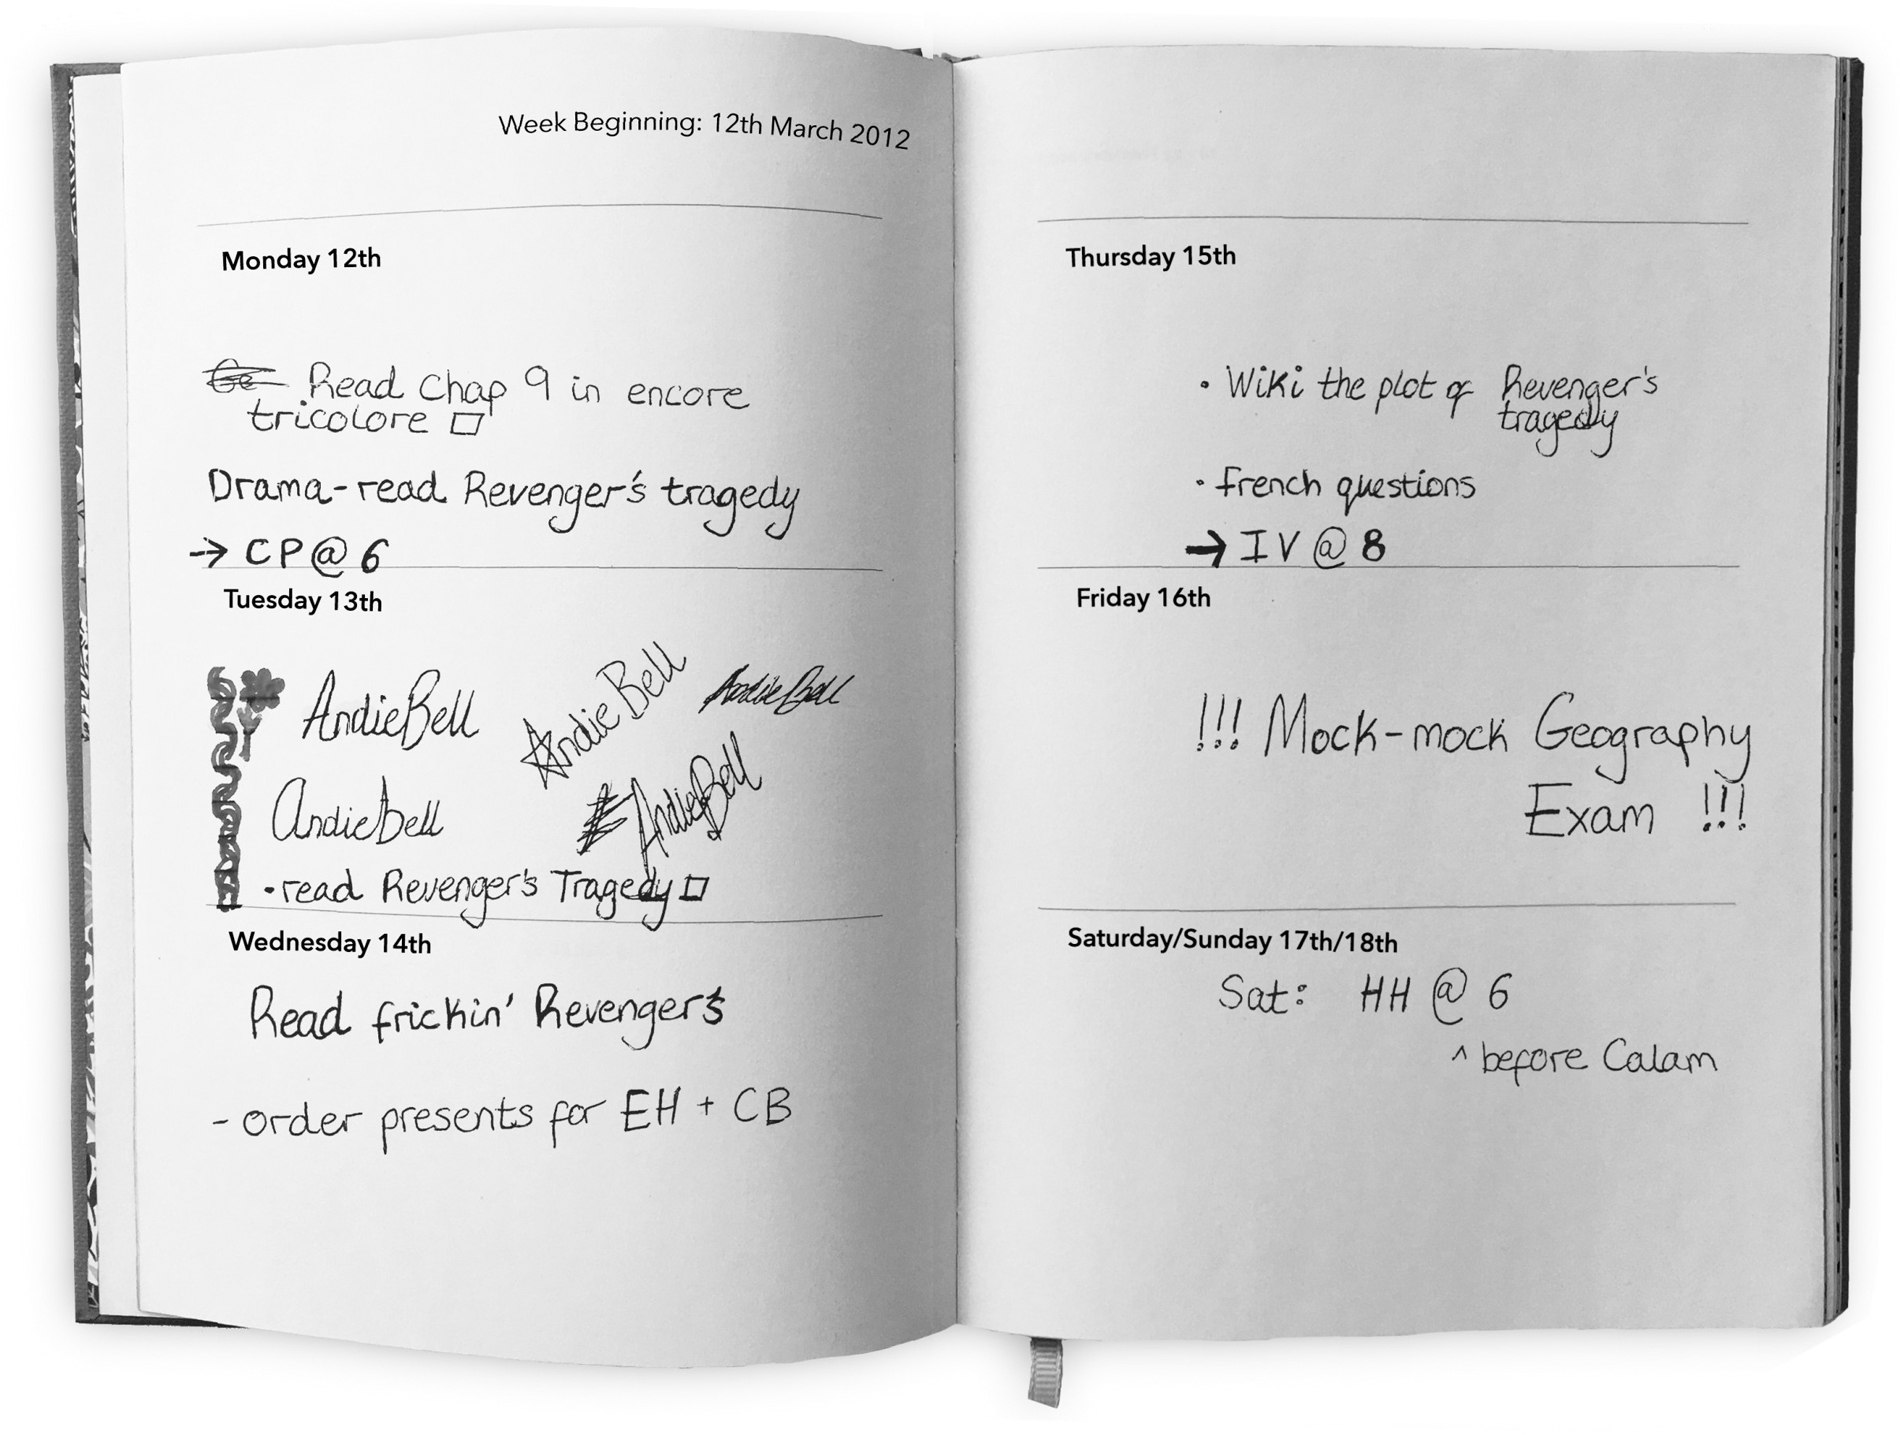 Week Beginning: 12th March 2012
Monday 12th
Read Chap 9 in encore
tricolore
Drama-read Revenger's tragedy
→ CP@6
Tuesday 13th
AndieBell
Andie Bell
AndieBell
AndieBell
AndieBell
•read Revenger's Tragedy
Wednesday 14th
Read frickin' Revenger's
- order presents for EH + CB
Thursday 15th
• Wiki the plot of Revenger's
tragedy
• french questions
→ IV@8
Friday 16th
!!! Mock-mock Geography
Exam !!!
Saturday/Sunday 17th/18th
Sat: HH @ 6
^ before Calam